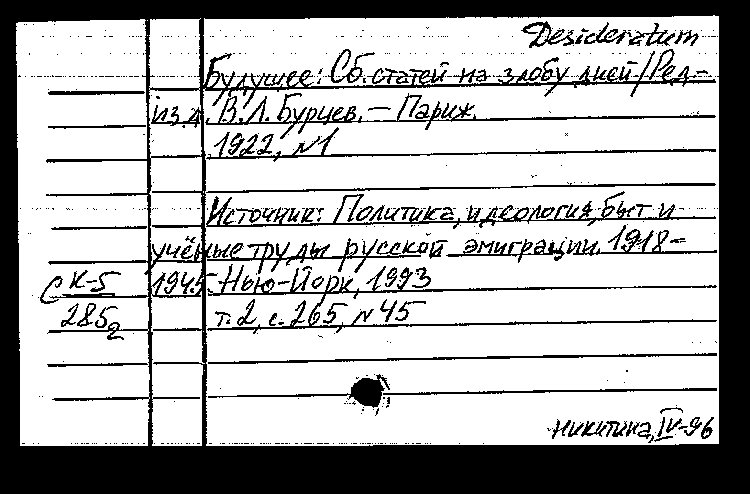 Desideratum
Будущее: Сб. статей на злобу дней / Ред-
изд. В.Л. Бурцев. — Париж.
1922, №1
Источник: Политика, идеология, быт и
учёные труды русской эмиграции. 1918-
1945. Нью-Йорк, 1993
т. 2, с. 265, №45
С К-5
285
2
Никитина, IV-96